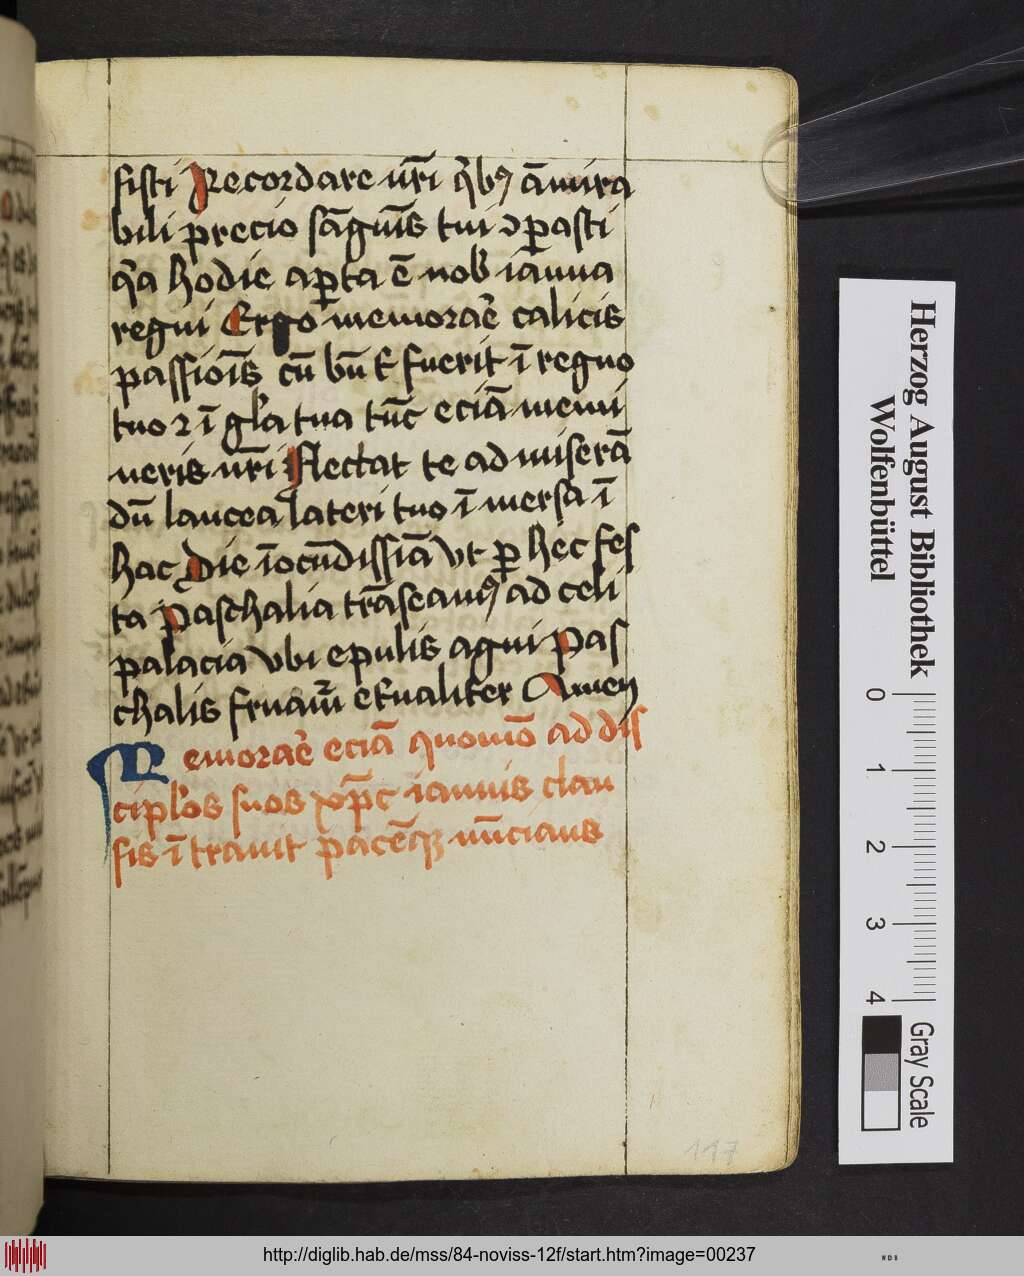 sisti Recordare nr̄i qͥbꝰ ām̄ira
bili precio sāguīs tui ꝯꝑasti
qͣa hodie aꝑta ē nob ianua
regni Ergo memorar̄e calicis
passiōis cū bn̄ tͥ fuerit ī regno
tuo ⁊ ī gl̄a tua tūc eciā memi
neris nr̄i Flectat te ad miserā
dū lancea lateri tuo ī mersa ī
hac Die iocūdissīā vt ꝑ hec fes
ta Paschalia trāseamꝰ ad celi
palacia vbi epulis agni Pas
chalis fruamr̄ et̄naliter Amen
Memorar̄e eciā quomō ad dis
cipl̄os suos xp̄c ianuis clau
sis ītrauit pacēqꝫ nūcians
117
Herzog August Bibliothek
Wolfenbüttel
0 1 2 3 4
Gray Scale
http://diglib.hab.de/mss/84-noviss-12f/start.htm?image=00237